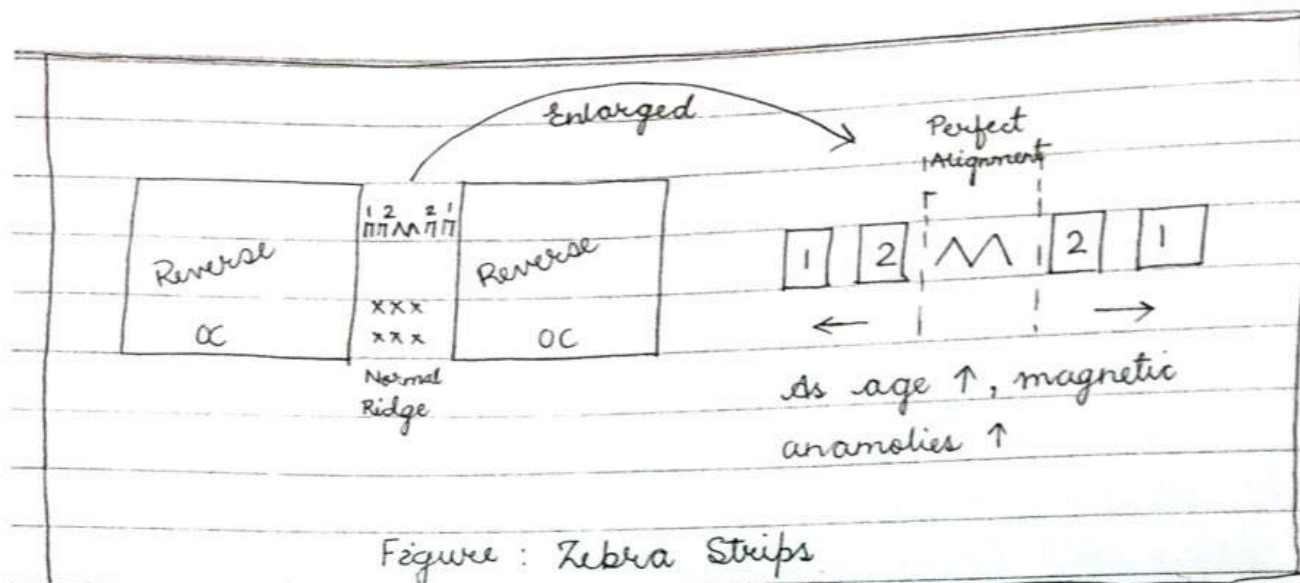 Enlarged
Perfect
Alignment
1 2 2 1
Reverse
OC
xxx
xxx
Normal
Ridge
Reverse
OC
1 2 2 1
As age ↑, magnetic
anamolies ↑
Figure : Zebra Strips